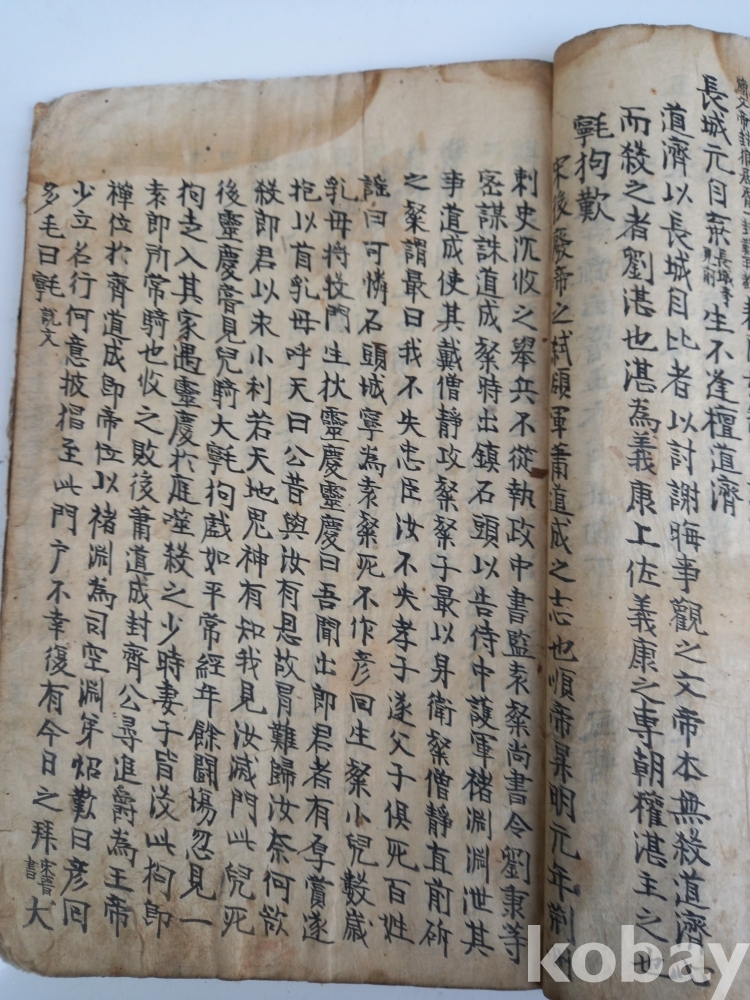 長城元自棄長城 生不逢檀道濟
道濟以長城自比者以討謝晦事觀之文帝本無殺道濟之心
而殺之者劉湛也湛為義康上佐義康之專朝權湛主之也
氋狗歎
宋後廢帝之弑領軍蕭道成之志也順帝昇明元年荊州
刺史沉收之擧兵不從執政中書監袁粲尚書令劉秉等
密謀誅道成粲時出鎮石頭以告侍中護軍褚淵淵泄其
事道成使其戴僧靜攻粲粲子最以身衛粲僧靜直前斫
之粲謂最曰我不失忠臣汝不失孝子遂父子俱死百姓
謠曰可憐石頭城寧為袁粲死不作彦回生粲小兒數歲
乳母將投門生狄靈慶靈慶曰吾聞出郎君者有厚賞遂
抱以首乳母呼天曰公昔與汝有恩故冒難歸汝奈何欲
殺郎君以求小利若天地鬼神有知我見汝滅門此兒死
後靈慶嘗見兒騎大氋狗戲如平常經年餘鬪場忽見一
狗走入其家遇靈慶於庭噬殺之少時妻子皆沒此狗即
袁郎所常騎也收之敗後蕭道成封齊公尋進爵為王帝
禪位於齊道成即帝位以褚淵為司空淵弟炤歎曰彦回
少立名行何意披猖至此門户不幸復有今日之拜宋書 大
多毛曰氋說文
kobay